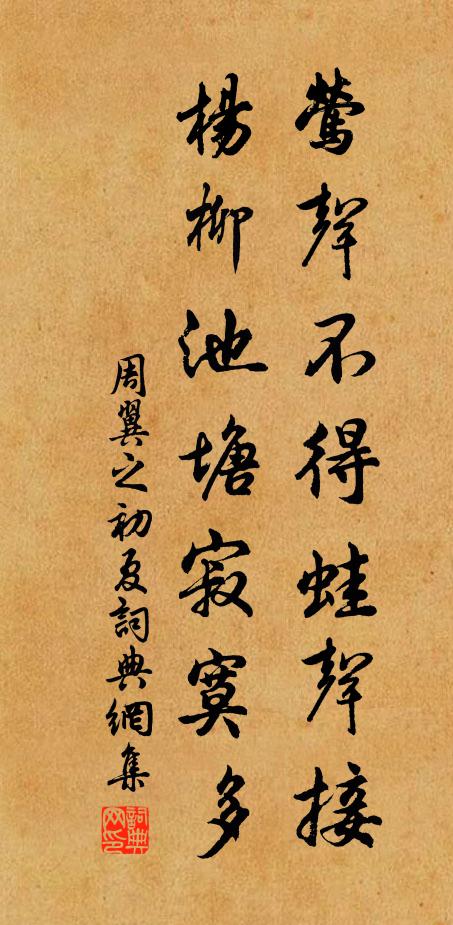 鶯聲不得蛙聲接
楊柳池塘寂寞多
周翼之初夏詞典網集
詞典網印